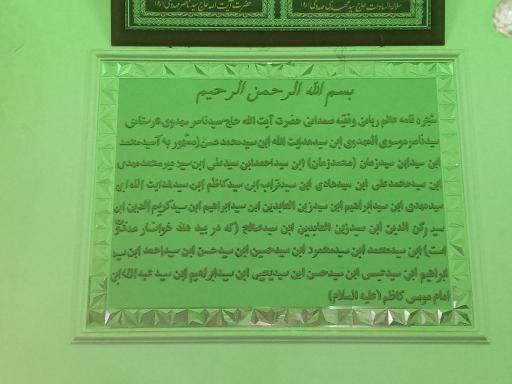 حضرت آیت الله حاج سید ناصر مهدوی سلاله السادات حاج سید مهدی
بسم الله الرحمن الرحیم
شجره نامه عالم ربانی و فقیه صمدانی حضرت آیت الله حاج سید ناصر مهدوی
سید ناصر موسوی المهدوی ابن سید هدایت الله ابن سید محمد حسن (مشهور به آسید محمد
ابن سید ابن سید زمان (محمد زمان) ابن سید احمد ابن سید علی ابن سید میر محمد مهدی
ابن سید محمد علی ابن سید هادی ابن سید تراب ابن سید کاظم ابن سید هدایت الله ابن
سید مهدی ابن سید ابراهیم ابن سید زین العابدین ابن سید ابراهیم ابن سید کریم الدین ابن
سید رکن الدین ابن سید زین العابدین ابن سید صالح (که در بید هند خوانسار مدفون
است) ابن سید محمد ابن سید محمود ابن سید حسین ابن سید حسن ابن سید احمد ابن سید
ابراهیم ابن سید عیسی ابن سید حسن ابن سید یحیی ابن سید ابراهیم ابن سید عبدالله ابن
امام موسی کاظم (علیه السلام)